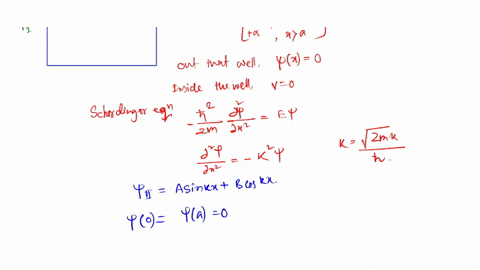 +∞ , x>a
out that well, ψ(x)=0
Inside the well, V=0
Schordinger eqⁿ -ħ²/2m ∂²ψ/∂x² = Eψ
∂²ψ/∂x² = -K²ψ
K = √2mx/ħ.
ψ_II = A sin kx + B cos kx.
ψ(0) = ψ(a) = 0